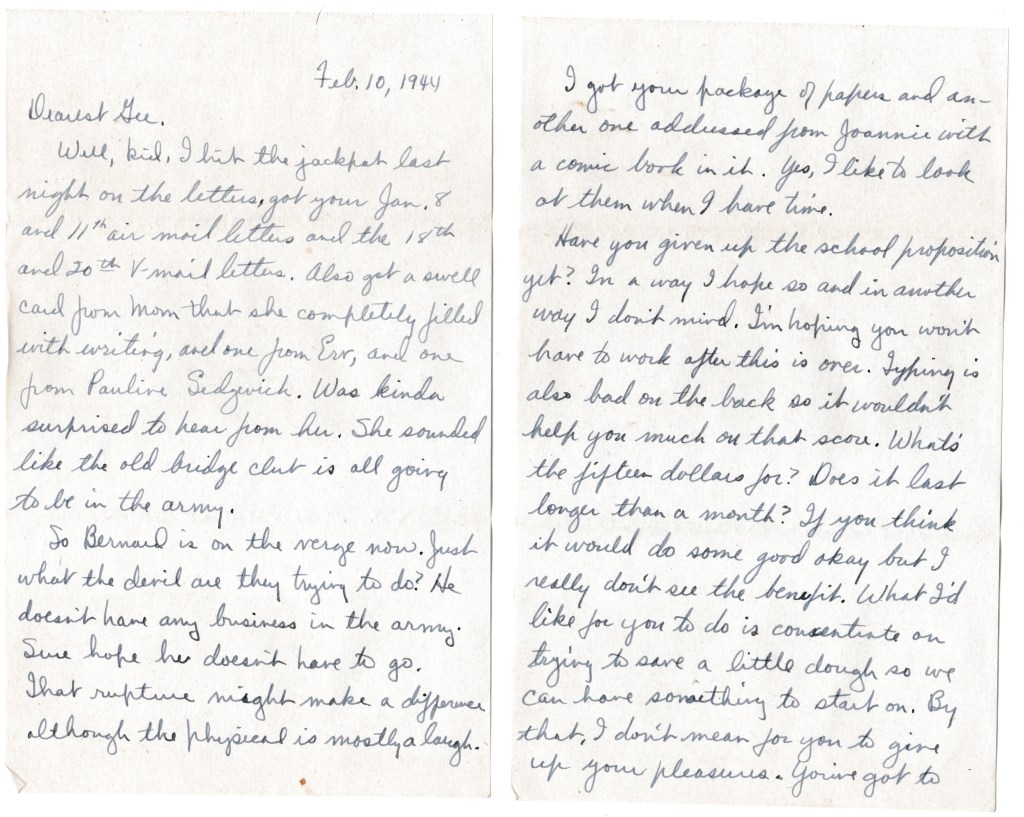 Feb. 10, 1944
Dearest Gee.
Well, kid, I hit the jackpat last
night on the letters, got your Jan. 8
and 11th air mail letters and the 18th
and 20th V mail letters. Also got a swell
card from Mom that she completely filled
with writing, and one from Erv, and one
from Pauline Sedgwich. Was kinda
surprised to hear from her. She sounded
like the old bridge club is all going
to be in the army.
So Bernard is on the verge now. Just
what the devil are they trying to do? He
doesn't have any business in the army.
Sure hope he doesn't have to go.
That rupture might make a difference
although the physical is mostly a laugh.
I got your package of papers and an-
other one addressed from Joannie with
a comic book in it. Yes, I like to look
at them when I have time.
Have you given up the school proposition
yet? In a way I hope so and in another
way I don't mind. I'm hoping you won't
have to work after this is over. Typing is
also bad on the back so it wouldn't
help you much on that score. What's
the fifteen dollars for? Does it last
longer than a month? If you think
it would do some good okay but I
really don't see the benefit. What I'd
like for you to do is consentrate on
trying to save a little dough so we
can have something to start on. By
that, I don't mean for you to give
up your pleasures. You've got to